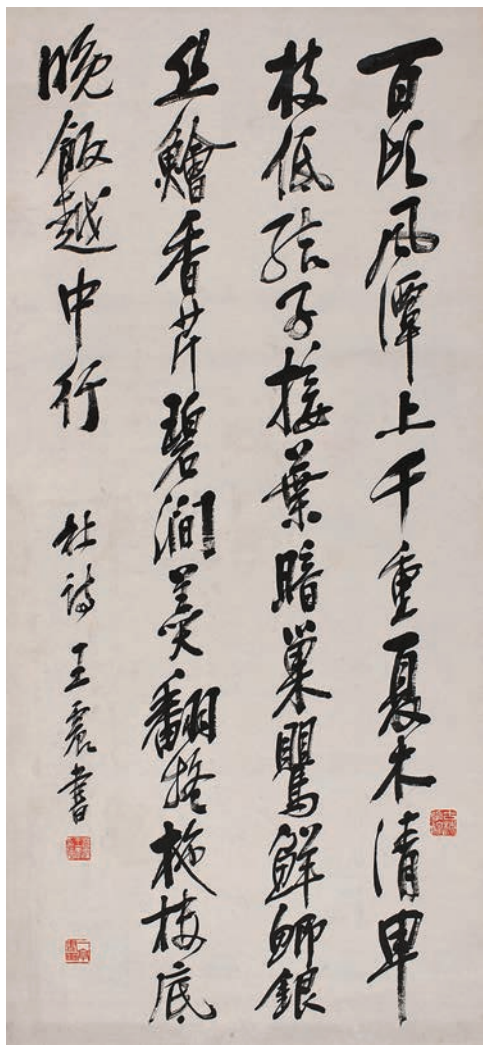 百頃風潭上千重夏木清卑
枝低結子接葉暗巢鸎鮮鯽銀
丝鱠香芹碧澗羹翻疑柂樓底
晚飯越中行
杜詩 王震書